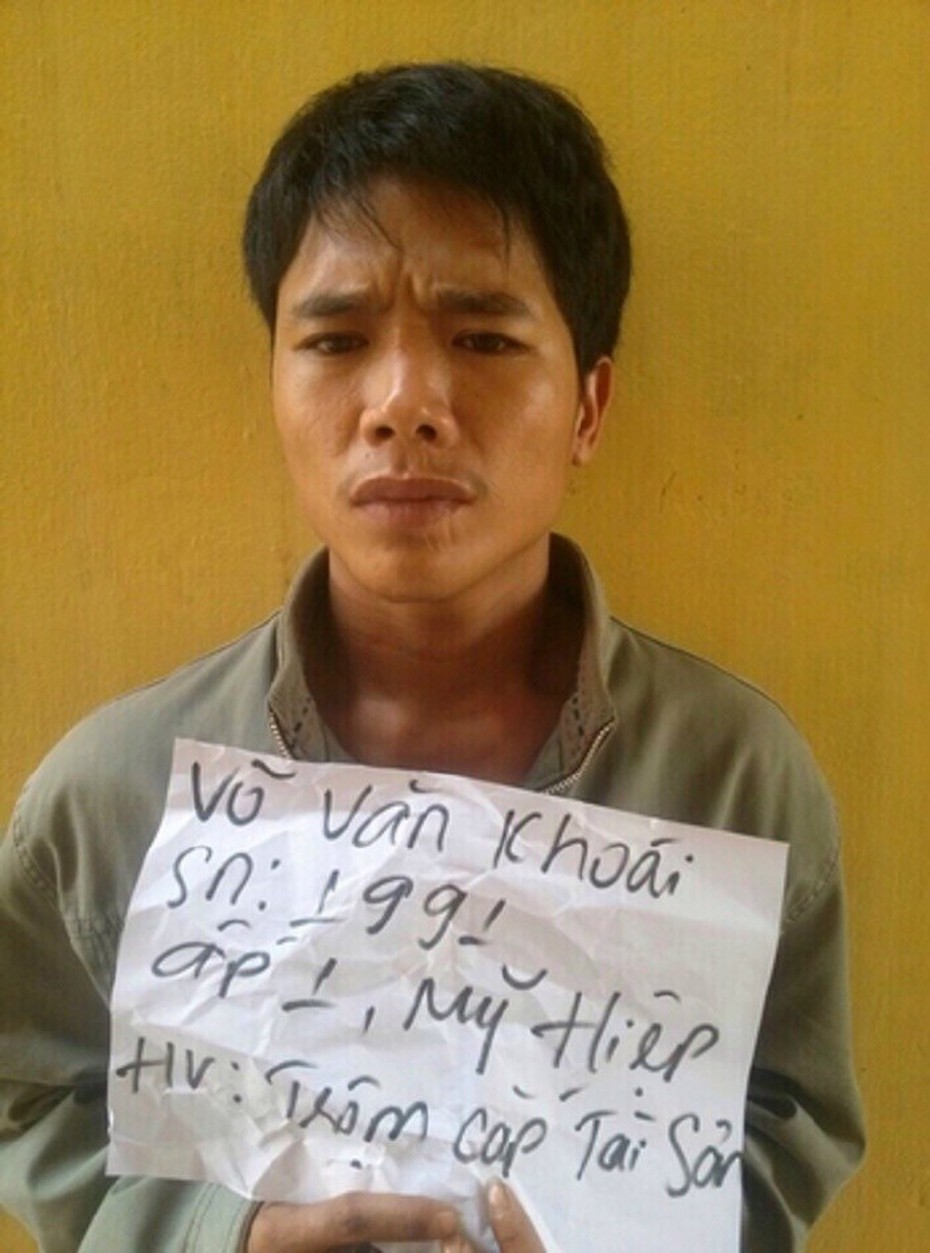 Võ Văn Khoái
Sn: 1991
ấp 1, Mỹ Hiệp
HV: Trộm cắp Tài Sản